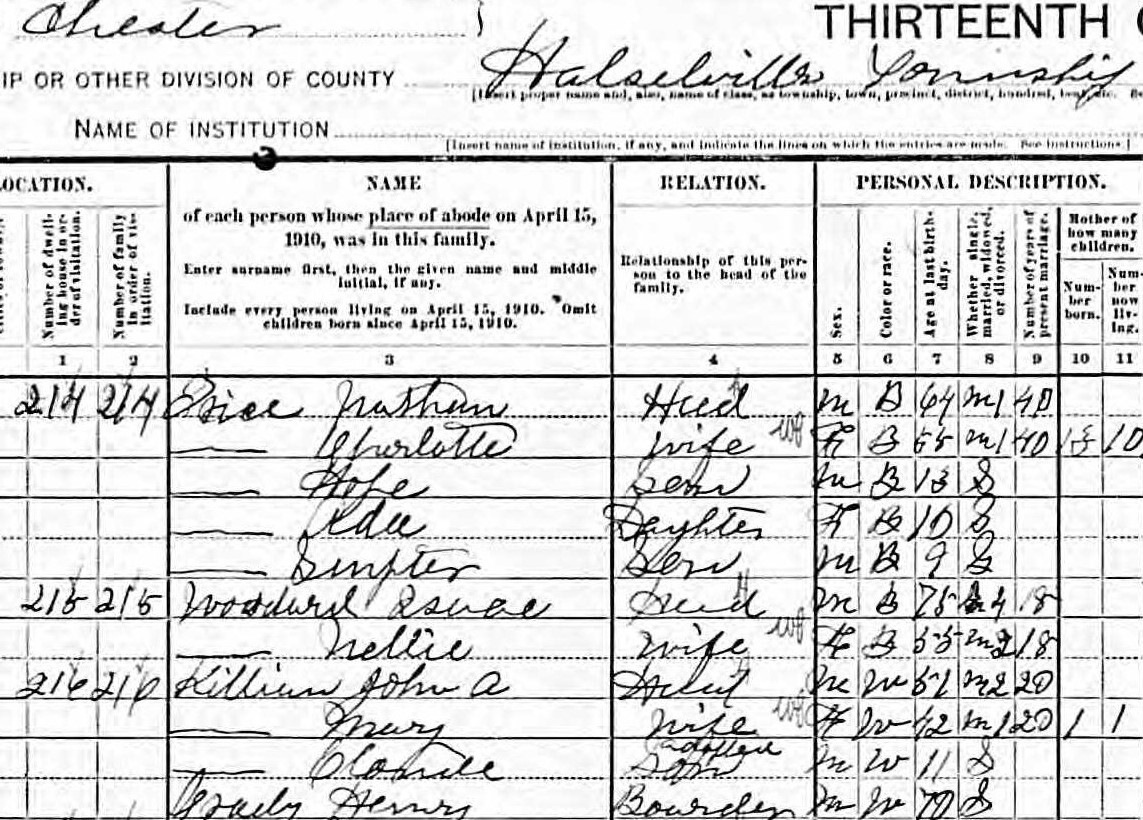 Chester
THIRTEENTH
IP OR OTHER DIVISION OF COUNTY Halselville Township
[Insert proper name and, also, name of class, as township, town, precinct, district, hundred, beat, etc.
NAME OF INSTITUTION
[Insert name of institution, if any, and indicate the lines on which the entries are made. See instructions.]
LOCATION. NAME RELATION. PERSONAL DESCRIPTION.
Number of dwelling house in order of visitation.
Number of family in order of visitation.
of each person whose place of abode on April 15,
1910, was in this family.
Enter surname first, then the given name and middle
initial, if any.
Include every person living on April 15, 1910. Omit
children born since April 15, 1910.
Relationship of this per-
son to the head of the
family.
Sex.
Color or race.
Age at last birth-
day.
Whether single,
married, widowed,
or divorced.
Number of years of
present marriage.
Mother of
how many
children.
Num-
ber
born.
Num-
ber
now
liv-
ing.
1 2 3 4 5 6 7 8 9 10 11
214 214 Nathan Head M B 64 M1 40
Charlotte Wife F B M1 40 13 10
Hope Son M B 13 S
Ada Daughter F B 10 S
Sumpter Son M B 9 S
215 215 Woodward Head M B 75 18
Nellie Wife F B 55 M2 18
216 216 Killian John A Head M W 51 M2 20
Mary Wife F W 42 M1 20 1 1
adopted
Son M W 11 S
Grady Henry Boarder M W 70 S